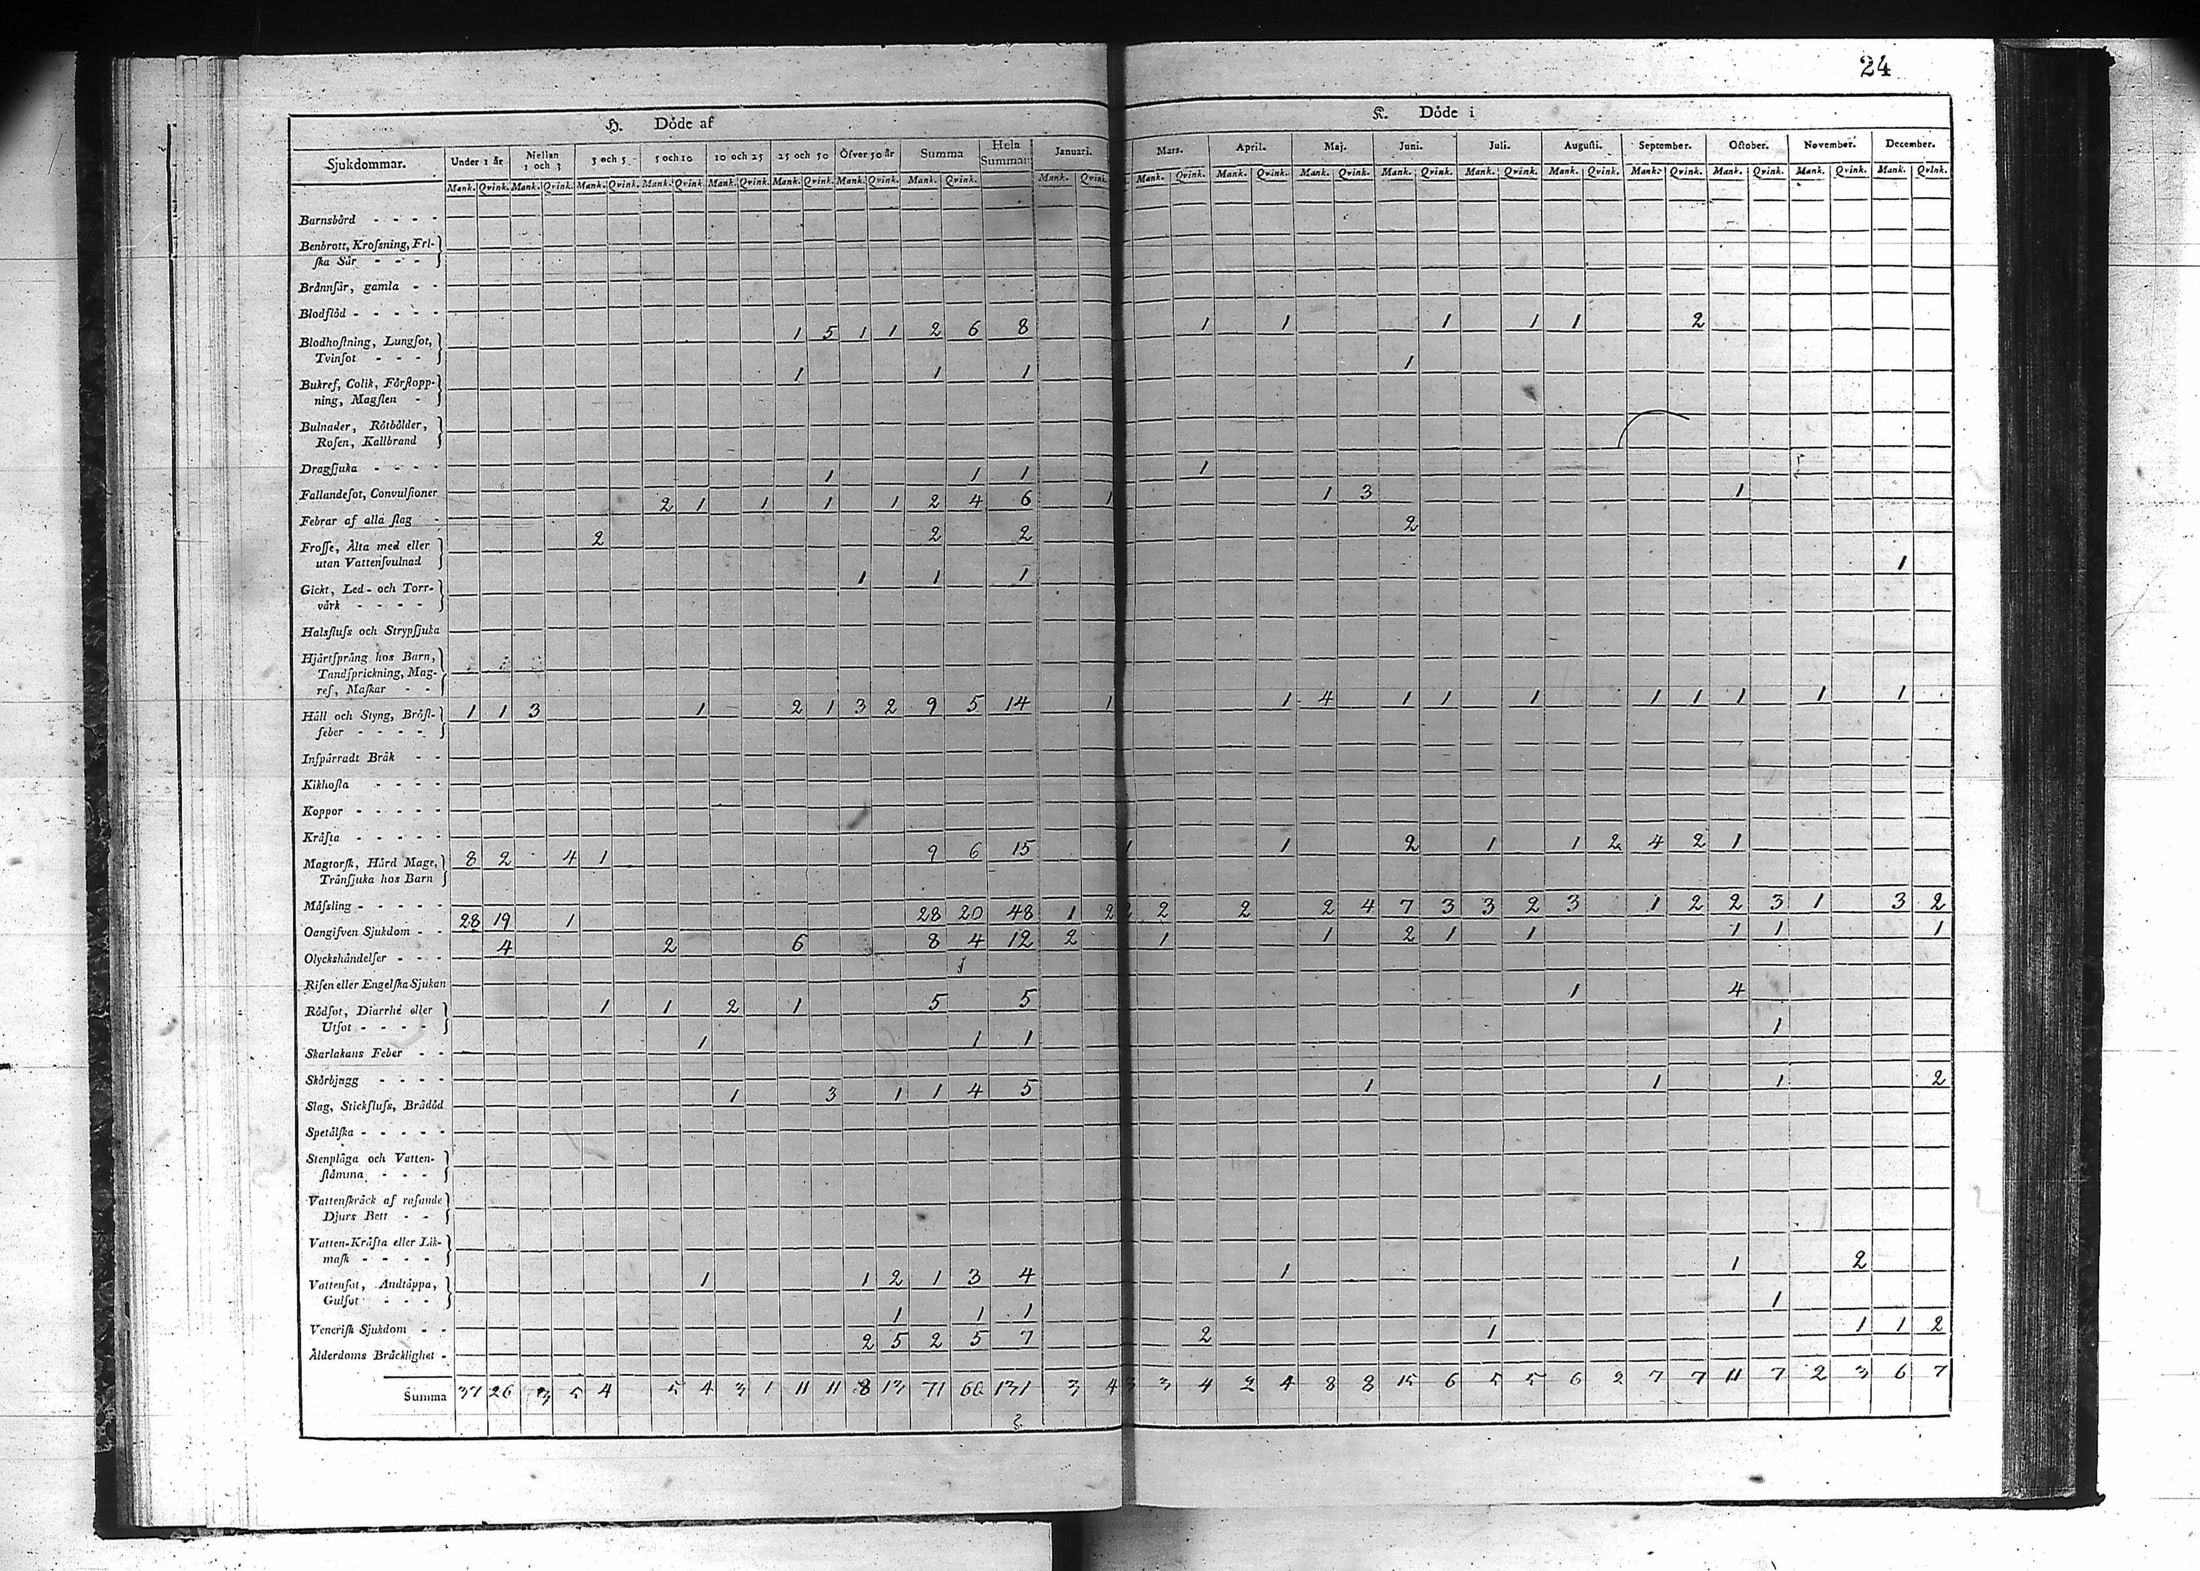 24
H. Döde af
K. Döde i
Sjukdommar. Under 1 år Mellan 1 och 3 3 och 5 5 och 10 10 och 25 25 och 50 Öfver 50 år Summa Hela Summan: Januari. Mars. April. Maj. Juni. Juli. Augusti. September. October. November. December.
Mank. Qvink. Mank. Qvink. Mank. Qvink. Mank. Qvink Mank. Qvink. Mank. Qvink. Mank. Qvink. Mank. Qvink. Mank. Qvink. Mank. Qvink. Mank. Qvink. Mank. Qvink. Mank. Qvink. Mank. Qvink. Mank. Qvink. Mank. Qvink. Mank. Qvink. Mank. Qvink. Mank. Qvink.
Barnsbörd - - - -
Benbrott, Krosning, Fri-
ska Sår - - -
Brännsår, gamla - -
Blodflöd - - - - -
1 5 1 1 2 6 8 1 1 1 1 1 2
Blodhostning, Lungsot,
Tvinsot - - -
1 1 1 1
Bukref, Colik, Förstopp-
ning, Magsten -
Bulnader, Rötbölder,
Rosen, Kallbrand
Dragsjuka - - - -
1 1 1 1
Fallandesot, Convulsioner
2 1 1 1 1 2 4 6 1 1 3 1
Febrar af alla slag -
2 2 2 2
Frosse, Älta med eller
utan Vattensvulnad
1 1 1 1
Gickt, Led- och Torr-
värk - - - -
Halsfluss och Strypsjuka
Hjärtsprång hos Barn,
Tandsprickning, Mag-
ref, Maskar - -
1 1 3 1 2 1 3 2 9 5 14 1 1 4 1 1 1 1 1 1 1 1
Håll och Styng, Bröst-
feber - - - -
Inspärradt Bråk - -
Kikhosta - - - -
Koppor - - - - -
Kräfta - - - - -
8 2 4 1 9 6 15 1 1 2 1 1 2 4 2 1
Magtorsk, Hård Mage,
Tränsjuka hos Barn
Mässling - - - - -
28 19 1 28 20 48 1 2 2 2 2 2 4 7 3 3 2 3 1 2 2 3 1 3 2
Oangifven Sjukdom - -
4 2 6 8 4 12 2 1 1 2 1 1 1 1 1
Olyckshändelser - - -
Risen eller Engelska Sjukan
1 1 2 1 5 5 1 4
Rödsot, Diarrhé eller
Utsot - - - -
1 1 1 1
Skarlakans Feber - -
Skörbjugg - - - -
1 3 1 1 4 5 1 1 1 2
Slag, Stickfluss, Brådöd
Spetälska - - - - -
Stenplåga och Vatten-
stämma - - -
Vattenskräck af rasande
Djurs Bett - -
Vatten-Kräfta eller Lik-
mask - - - -
1 1 2 1 3 4 1 1 2
Vattensot, Andtäppa,
Gulsot - - -
1 1 1 1
Venerisk Sjukdom - -
2 5 2 5 7 2 1 1 1 2
Ålderdoms Bräcklighet -
Summa 37 26 3 5 4 5 4 3 1 11 11 8 13 71 60 131 3 4 3 3 4 2 4 8 8 15 6 5 5 6 2 7 7 11 7 2 3 6 7